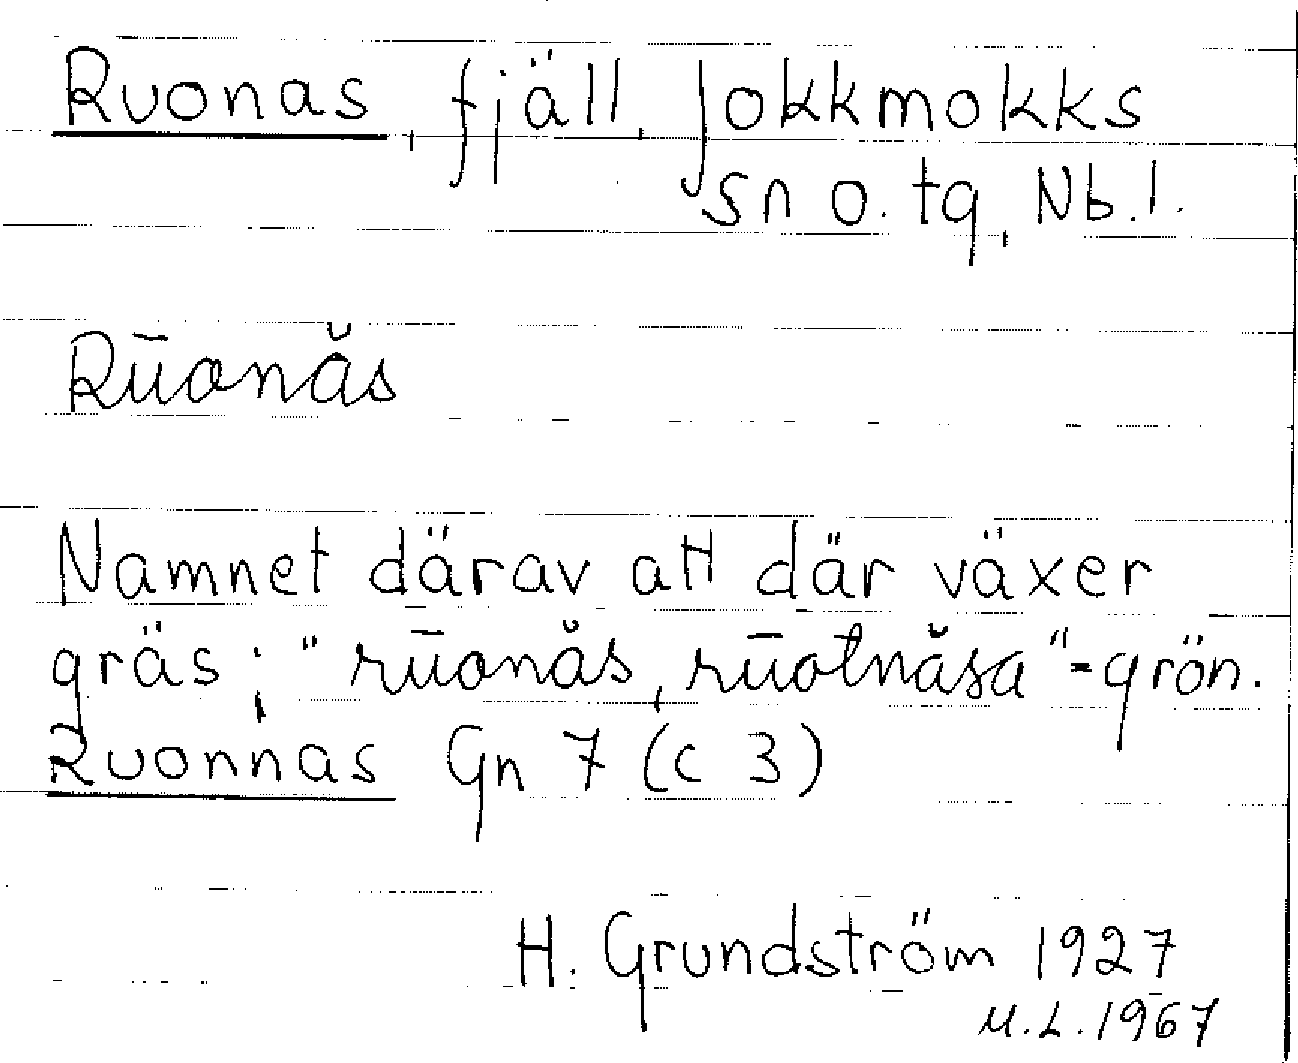 Ruonas, fjäll, Jokkmokks
sn o. tg, Nb.l.
Rūonăs
Namnet därav att där växer
gräs; "rūonăs, rūotnăsa"-grön.
Ruonnas Gn 7 (c 3)
H. Grundström 1927
M.L. 1967